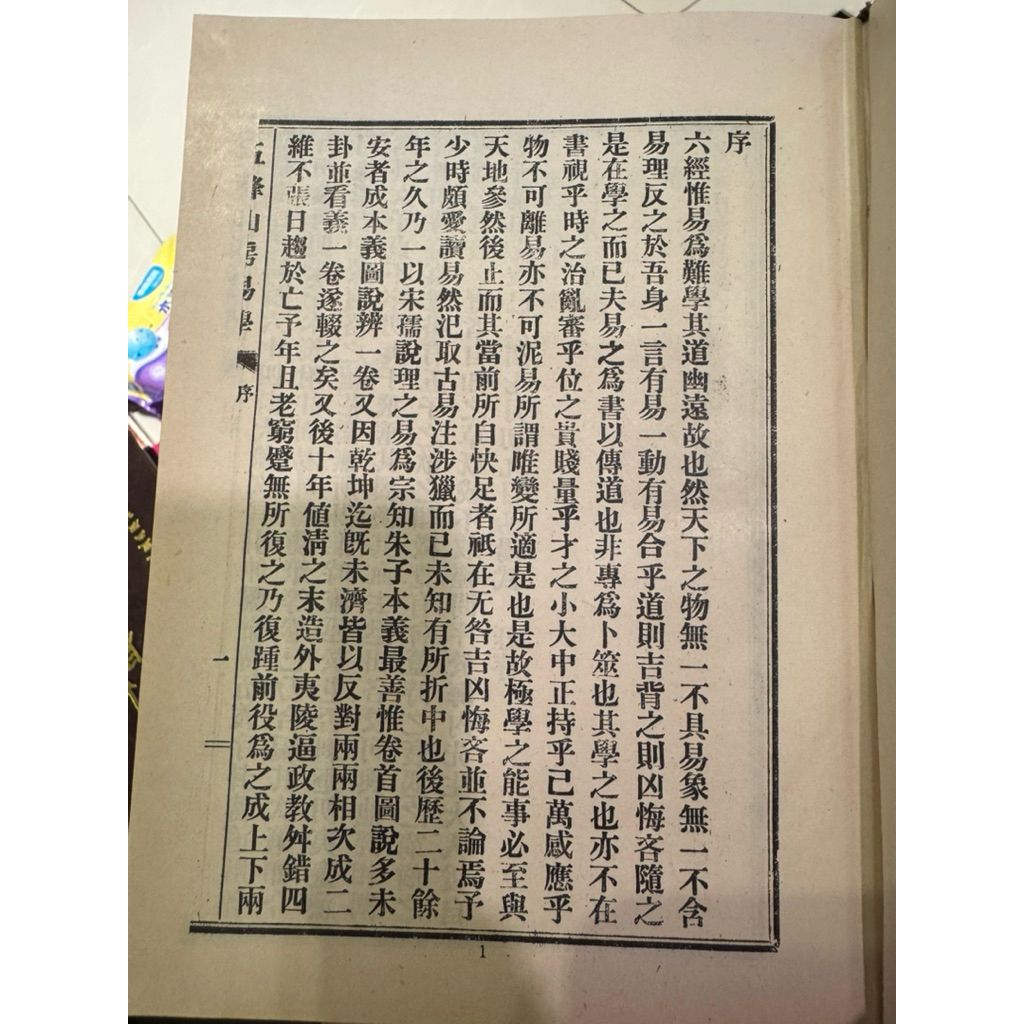 序
六經惟易爲難學其道幽遠故也然天下之物無一不具易象無一不含
易理反之於吾身一言有易一動有易合乎道則吉背之則凶悔吝隨之
是在學之而已夫易之爲書以傳道也非專爲卜筮也其學之也亦不在
書視乎時之治亂審乎位之貴賤量乎才之小大中正持乎己萬感應乎
物不可離易亦不可泥易所謂唯變所適是也是故極學之能事必至與
天地參然後止而其當前所自快足者祇在无咎吉凶悔吝並不論焉予
少時頗愛讀易然汜取古易注涉獵而已未知有所折中也後歷二十餘
年之久乃一以宋孺說理之易爲宗知朱子本義最善惟卷首圖說多未
安者成本義圖說辨一卷又因乾坤迄旣未濟皆以反對兩兩相次成二
卦並看義一卷遂輟之矣又後十年値清之末造外夷陵逼政教舛錯四
維不張日趨於亡予年且老窮蹙無所復之乃復踵前役爲之成上下兩
五峰山房易學
序
一
1